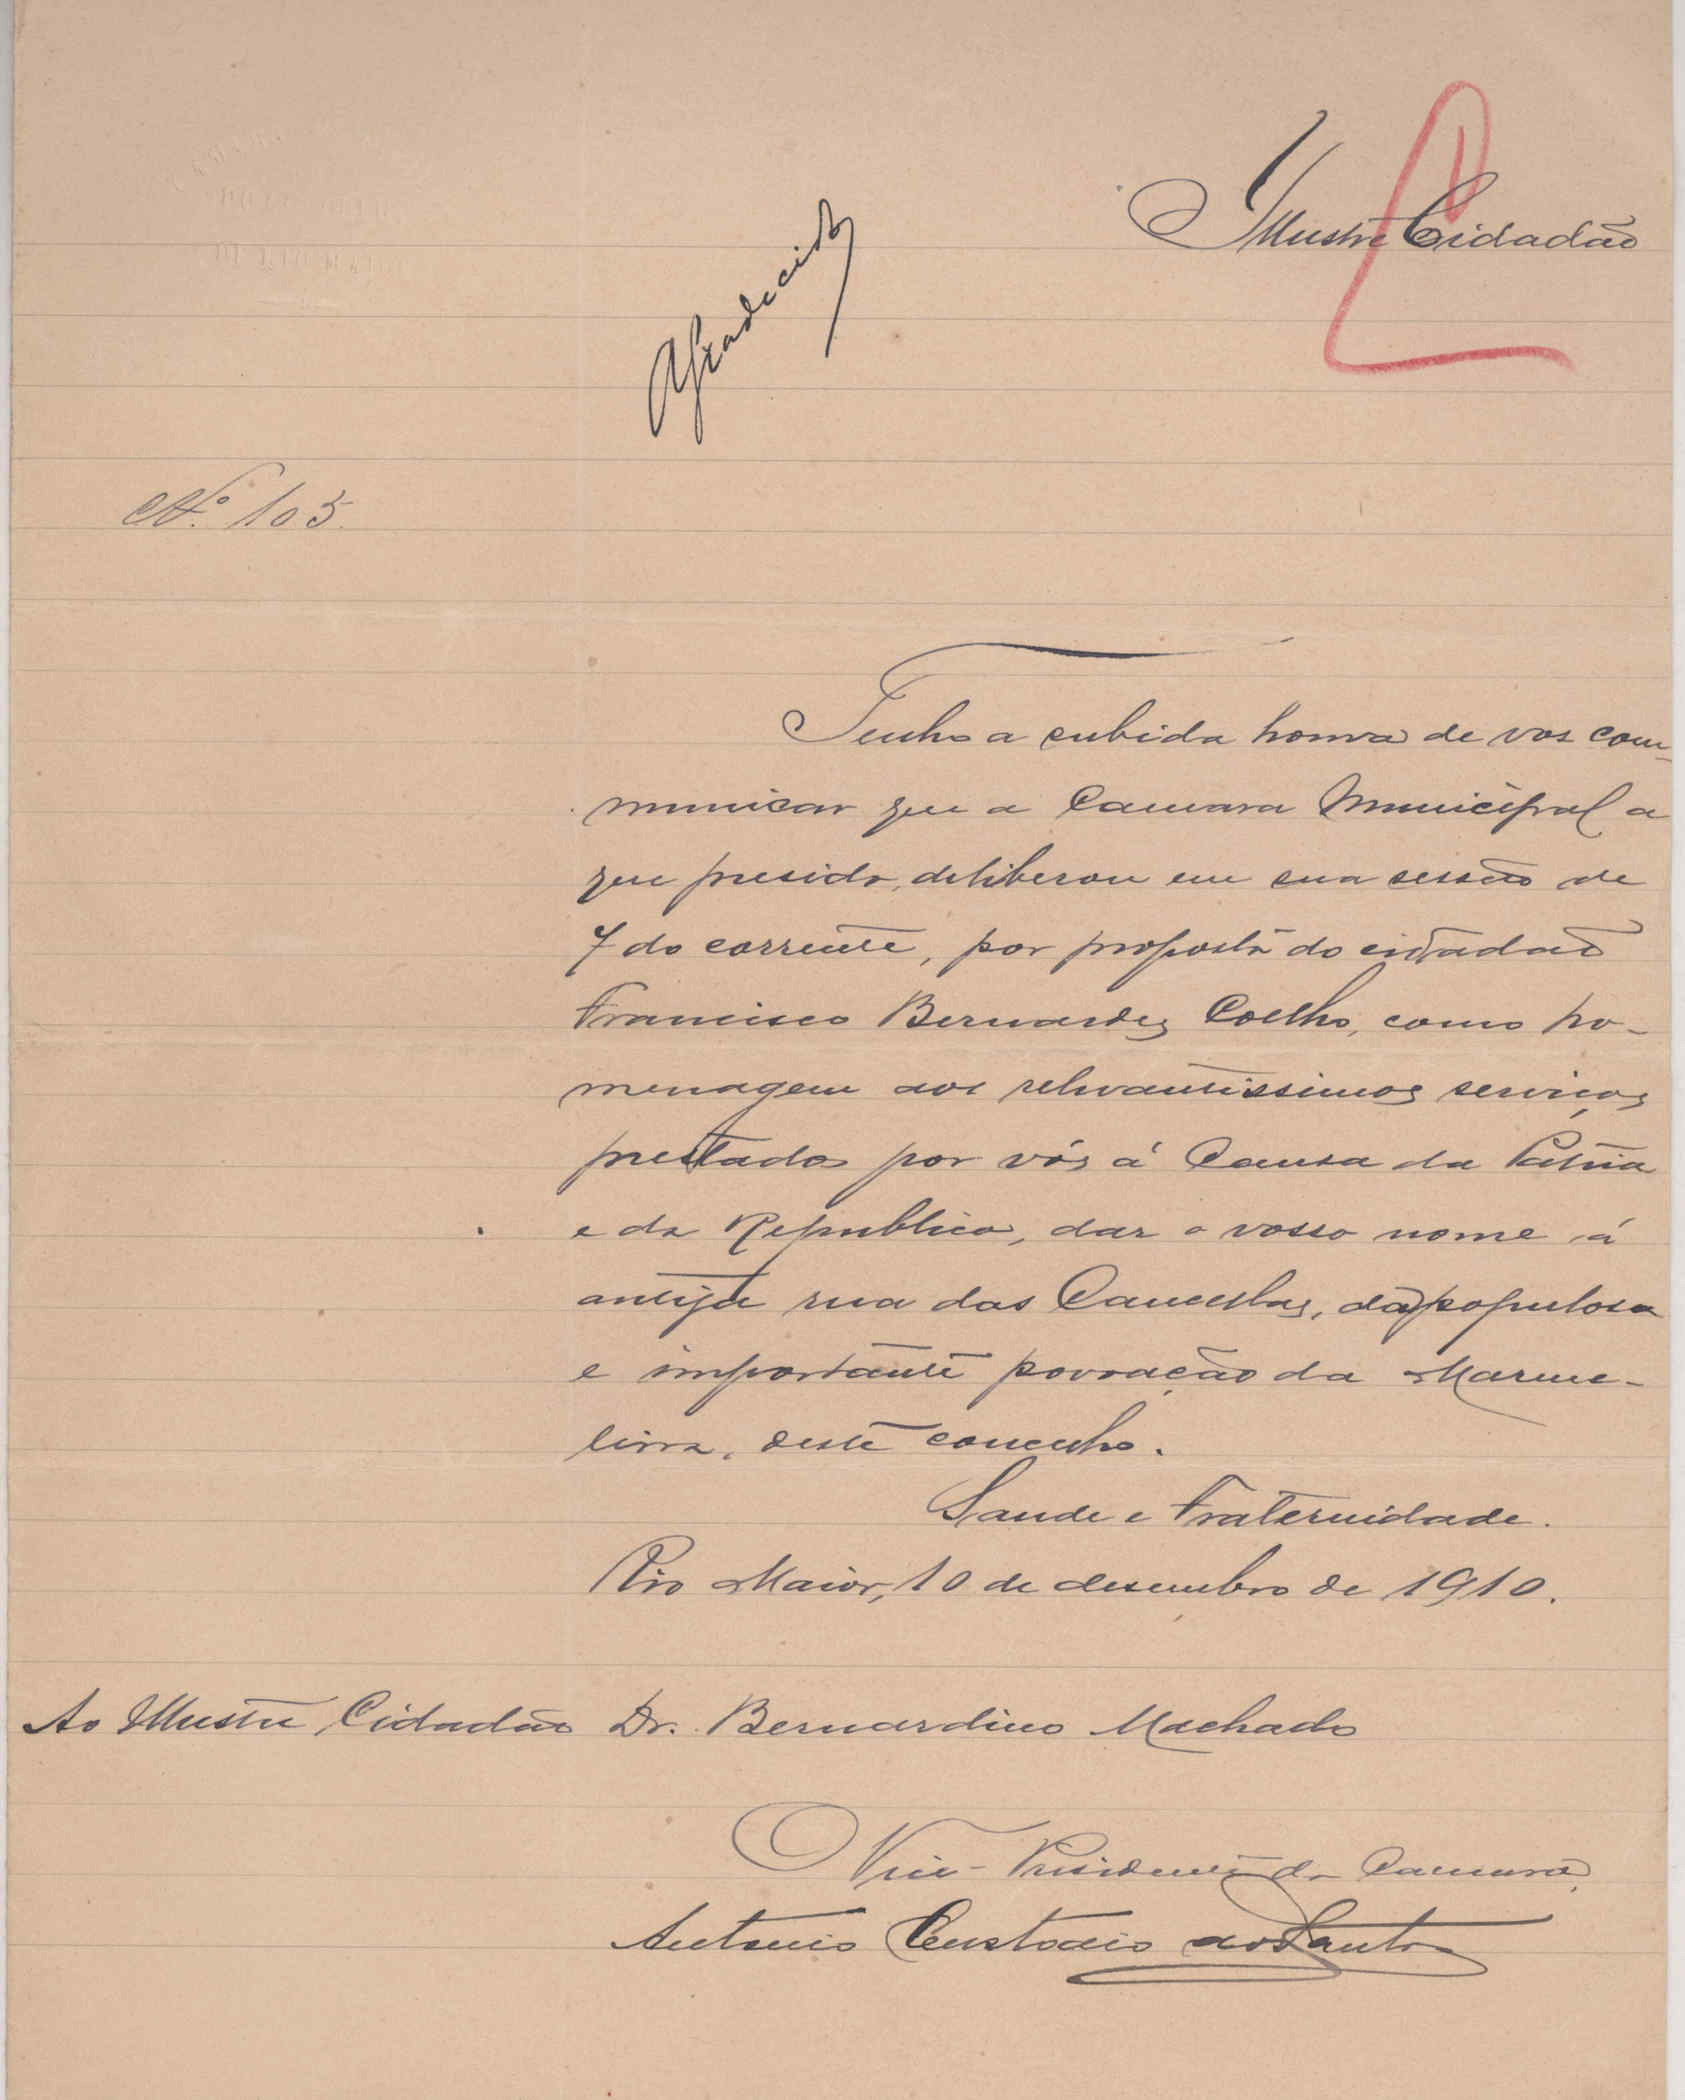 Illustre Cidadão
Agradecido
Nº 105.
Tenho a subida honra de vos com-
municar que a Camara Municipal a
que presido, deliberou em sua sessão de
7 do corrente, por proposta do cidadão
Francisco Bernardes Coelho, como ho-
menagem aos relevantissimos serviços
prestados por vós á Causa da Patria
e da Republica, dar o vosso nome á
antiga rua das Cancellas, da populosa
e importante povoação da Marme-
leira, deste concelho.
Saude e Fraternidade.
Rio Maior, 10 de desembro de 1910.
Ao Illustre Cidadão Dr. Bernardino Machado
O Vice-Presidente da Camara,
Antonio Custodio dos Santos